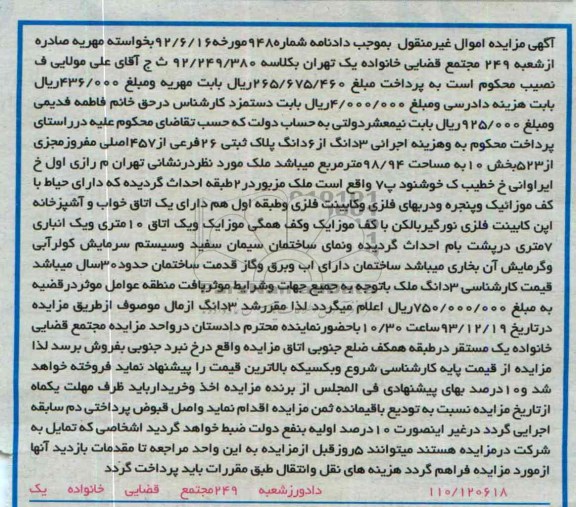 آگهی مزایده اموال غیرمنقول بموجب دادنامه شماره۹۴۸مورخه۹۲/۶/۱۶بخواسته مهریه صادره
ازشعبه ۲۴۹ مجتمع قضایی خانواده یک تهران بکلاسه ۹۲/۲۴۹/۳۸۰ ث ج آقای علی مولایی ف
نصیب محکوم است به پرداخت مبلغ ۲۶۵/۶۷۵/۴۶۰ریال بابت مهریه ومبلغ ۴۳۶/۰۰۰ریال
بابت هزینه دادرسی ومبلغ ۴/۰۰۰/۰۰۰ریال بابت دستمزد کارشناس درحق خانم فاطمه قدیمی
ومبلغ ۹۲۵/۰۰۰ریال بابت نیمعشردولتی به حساب دولت که حسب تقاضای محکوم علبه درراستای
پرداخت محکوم به وهزینه اجرائی ۳دانگ از۶دانگ پلاک ثبتی ۲۶فرعی از۴۵۷اصلی مفروزمجزی
از۵۲۳بخش ۱۰به مساحت ۹۸/۹۴مترمربع میباشد ملک مورد نظردرنشانی تهران م رازی اول خ
ایروانی خ خطیب ک خوشنود پ۷ واقع است ملک مزبوردر۲طبقه احداث گردیده که دارای حیاط با
کف موزائیک وپنجره ودربهای فلزی وکابینت فلزی وطبقه اول هم دارای یک اتاق خواب و آشپزخانه
اپن کابینت فلزی نورگیربالکن با کف موزایک وکف همگی موزایک ویک اتاق ۱۰متری ویک انباری
۷متری درپشت بام احداث گردیده ونمای ساختمان سیمان سفید وسیستم سرمایش کولرآبی
وگرمایش آن بخاری میباشد ساختمان دارای اب وبرق وگاز قدمت ساختمان حدود۳۰سال میباشد
قیمت کارشناسی ۳دانگ ملک باتوجه به جمیع جهات وشرایط موثربافت منطقه عوامل موثردرقضیه
به مبلغ ۷۵۰/۰۰۰/۰۰۰ریال اعلام میگردد لذا مقررشد ۳دانگ ازمال موصوف ازطریق مزایده
درتاریخ ۹۳/۱۲/۱۹ساعت ۱۰/۳۰ باحضورنماینده محترم دادستان درواحد مزایده مجتمع قضایی
خانواده یک مستقر درطبقه همکف ضلع جنوبی اتاق مزایده واقع درخ نبرد جنوبی بفروش برسد لذا
مزایده از قیمت پایه کارشناسی شروع وبکسیکه بالاترین قیمت را پیشنهاد نماید فروخته خواهد
شد و۱۰درصد بهای پیشنهادی فی المجلس از برنده مزایده اخذ وخریدارباید ظرف مهلت یکماه
ازتاریخ مزایده نسبت به تودیع باقیمانده ثمن مزایده اقدام نماید واصل قبوض پرداختی دم سابقه
اجرایی گردد درغیر اینصورت ۱۰درصد اولیه بنفع دولت ضبط خواهد گردید اشخاصی که تمایل به
شرکت درمزایده هستند میتوانند ۵روزقبل ازمزایده به این واحد مراجعه تا مقدمات بازدید آنها
ازمورد مزایده فراهم گردد هزینه های نقل وانتقال طبق مقررات باید پرداخت گردد
۱۱۰/۱۲۰۶۱۸ دادورزشعبه ۲۴۹مجتمع قضایی خانواده یک